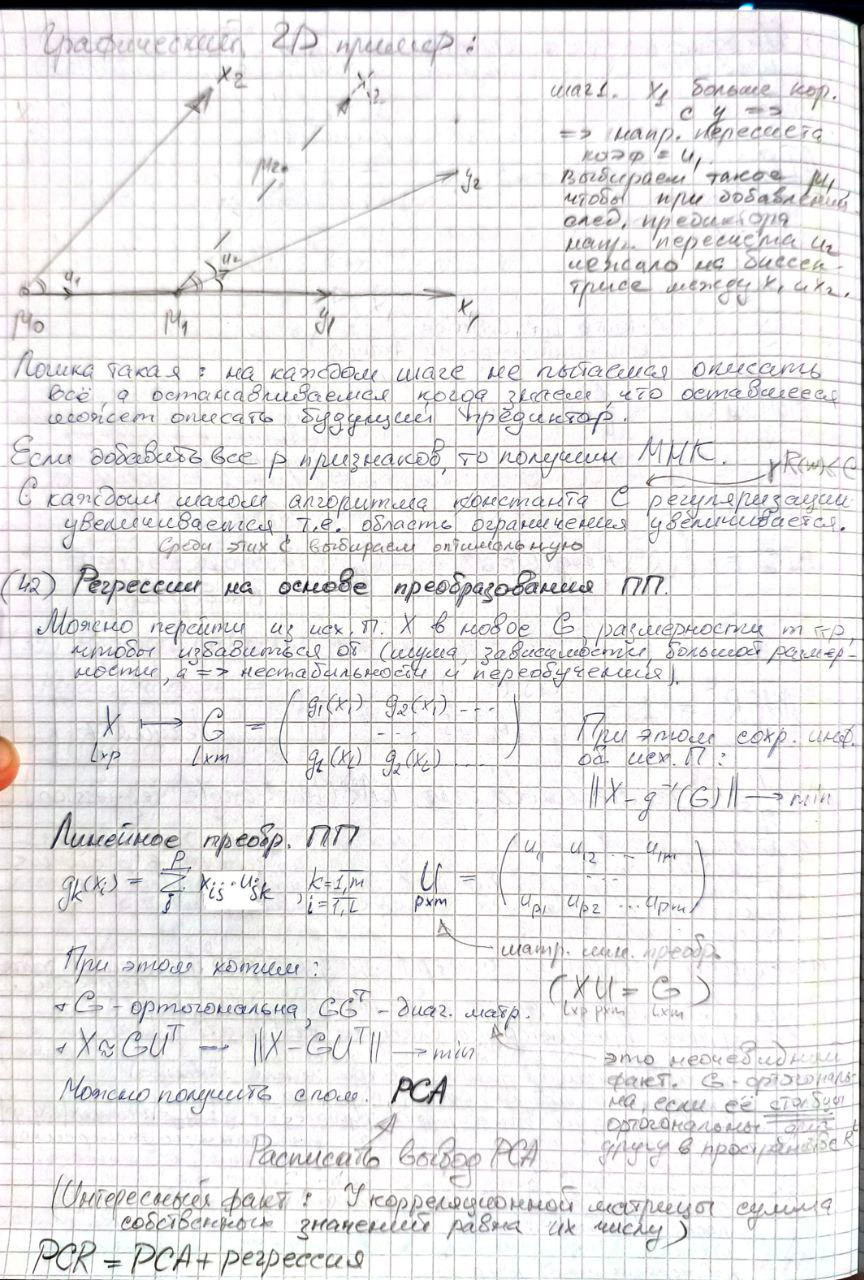 Графический 2D пример:
x₂
x'₂
μ₂
y₂
u₁
u₂
μ₀
μ₁
y₁
x₁
шаг 1. x₁ больше кор.
с y =>
=> напр. пересчета
коэф = u₁
Выбираем такое μ₁,
чтобы при добавлении
след. предиктора
напр. пересчета u₂
лежало на биссек-
трисе между x₁ и x₂.
Логика такая: на каждом шаге не пытаемся описать
всё, а останавливаемся когда знаем, что оставшееся
может описать будущий предиктор.
Если добавить все p признаков, то получим МНК.
R(w) < C
С каждым шагом алгоритма константа C регуляризации
увеличивается т.е. область ограничения увеличивается.
Среди этих C выбираем оптимальную
(42) Регрессии на основе преобразования ПП.
Можно перейти из исх. п. X в новое G, размерности m < p,
чтобы избавиться от (шума, зависимости, большой размер-
ности, а => нестабильности и переобучения).
X ⟼ G = ( g₁(x₁) g₂(x₁) ...
...
l×p l×m g₁(x_l) g₂(x_l) ... )
При этом сохр. инф.
об исх. П:
||X - g⁻¹(G)|| → min
Линейное преобр. ПП
g_k(x_i) = Σ_j^p x_ij · u_jk, k=1,m i=1,l
U = ( u₁₁ u₁₂ ... u₁m
p×m ...
u_p1 u_p2 ... u_pm )
матр. лин. преобр.
При этом хотим:
(XU = G)
l×p p×m l×m
+ G - ортогональна, GGᵀ - диаг. матр.
+ X ≈ GUᵀ — ||X - GUᵀ|| → min
это неочевидный
факт. G - ортогональ-
на, если её столбцы
ортогональны друг
другу в пространстве Rˡ
Можно получить с пом. PCA
Расписать вывод PCA
(Интересный факт: У корреляционной матрицы сумма
собственных значений равна их числу)
PCR = PCA + регрессия